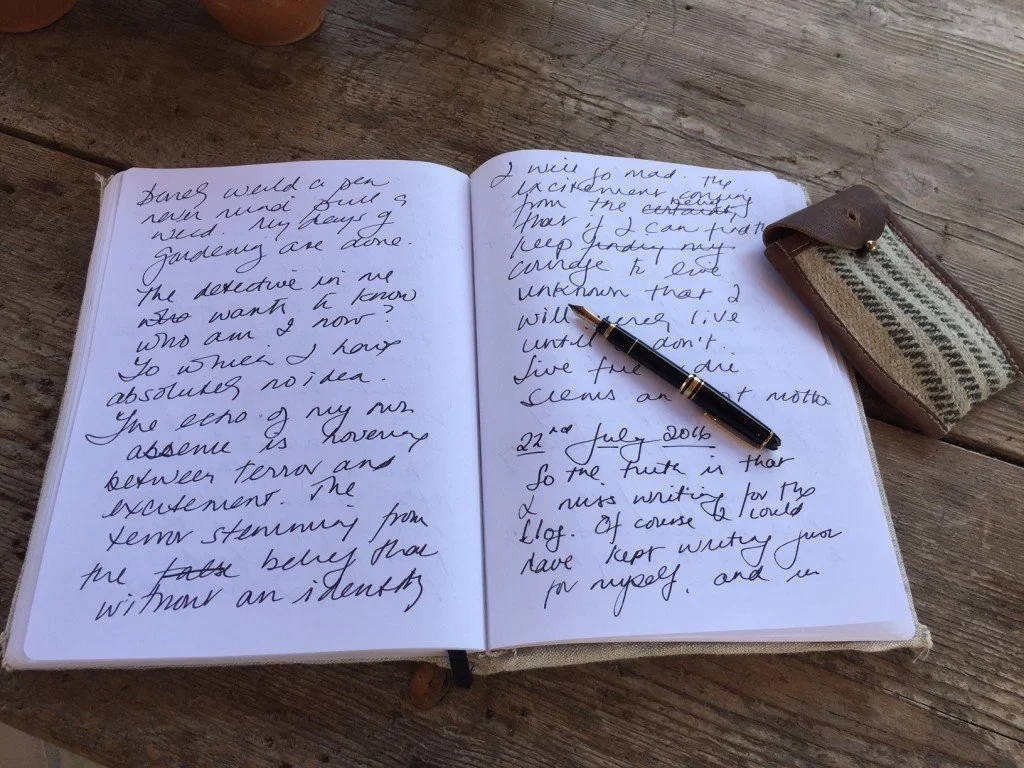 wield a pen
never mind
weed. My days of
gardening are done.
The detective in me
who wants to know
who am I now?
To which I have
absolutely no idea.
The echo of my own
absence is hovering
between terror and
excitement. The
terror stemming from
the false belief that
without an identity
I will go mad. The
excitement coming
from the certainty
that if I can
keep finding my
courage to live
unknown that I
will live
until don't.
live free die
seems
22nd July 2016
So the truth is that
I miss writing for the
blog. Of course I could
have kept writing just
for myself, and in